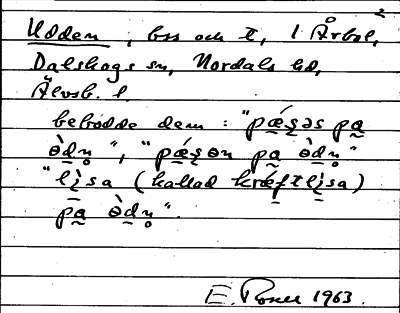 2
Udden, bss och t, 1 Årbol,
Dalskogs sn, Nordals hd,
Älvsb. l.
bebodde dem: "pæʂəs pa
òdn̥", "pæʂən pa òdn̥"
"lisa (kallad kræftlisa)
pa òdn̥".
E. 1963.